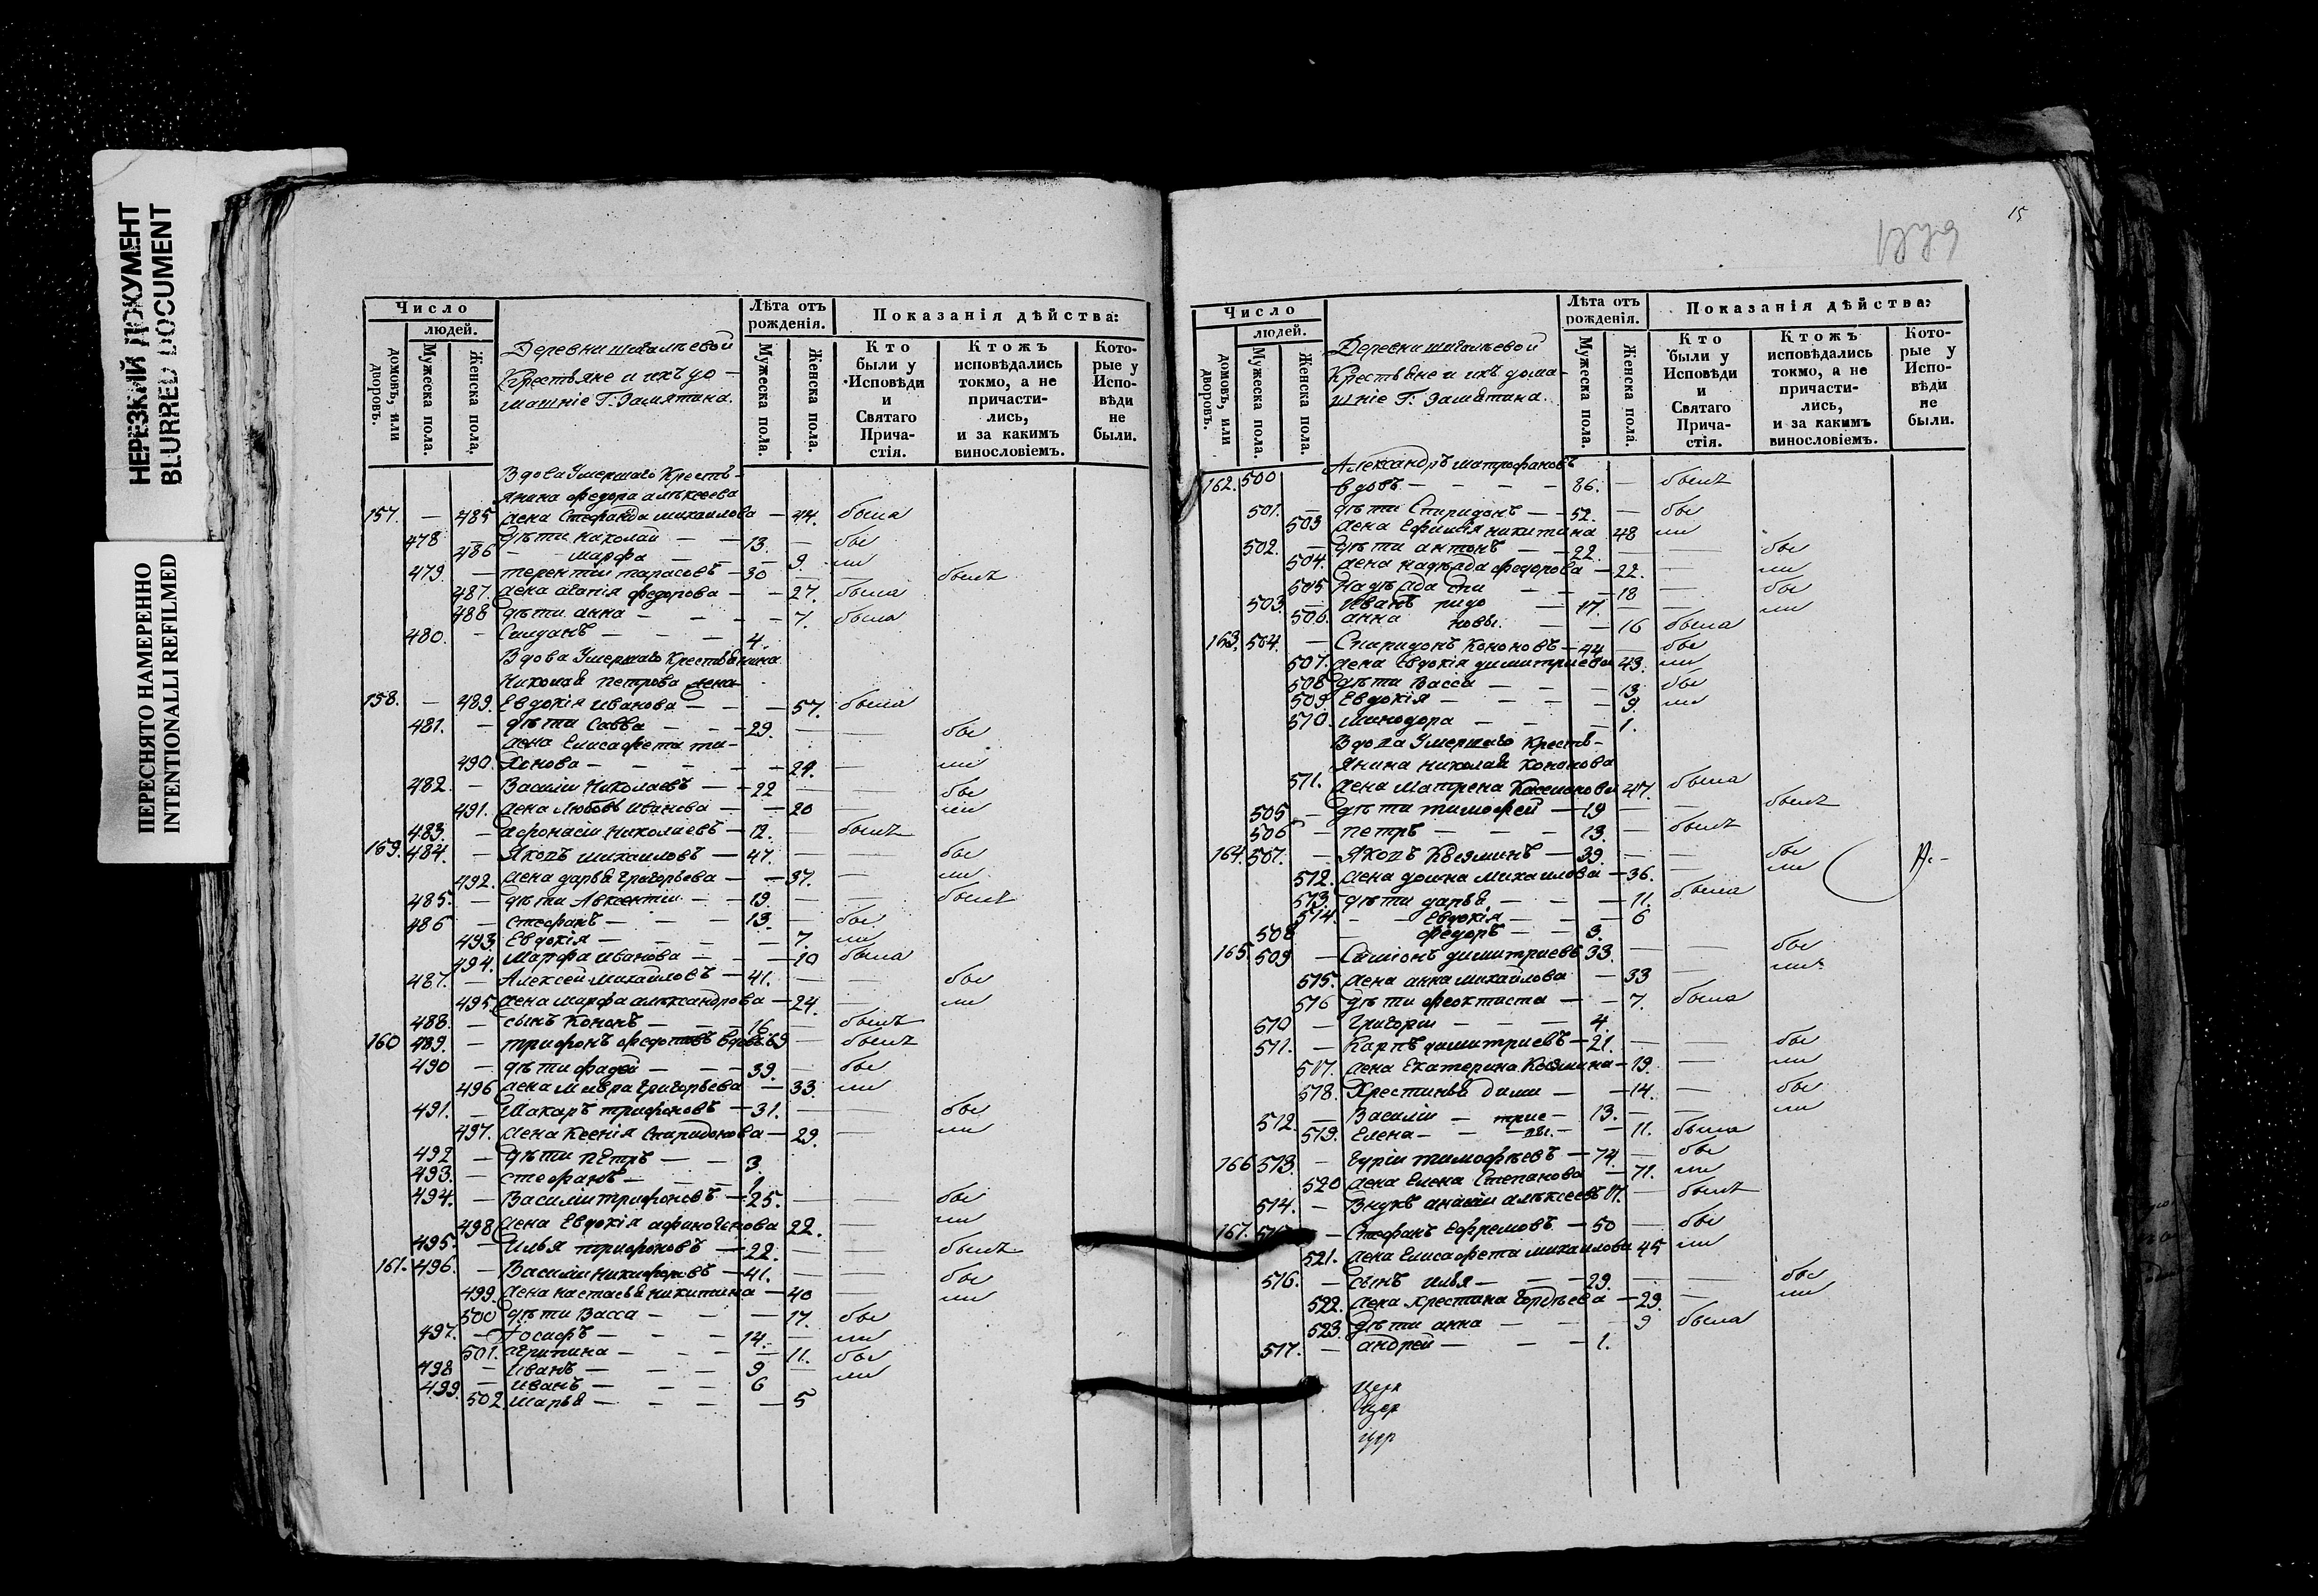 НЕРЕЗКИЙ ДОКУМЕНТ
BLURRED DOCUMENT
ПЕРЕСНЯТО НАМЕРЕННО
INTENTIONALLI REFILMED
Число
людей.
домовъ, или дворовъ.
Мужеска пола.
Женска пола.
Деревни шигалѣевой
Крестьяне и ихъ до-
машніе Г. Замятина.
Лѣта отъ рожденія.
Мужеска пола.
Женска пола.
Показанія дѣйства:
Кто были у Исповѣди и Святаго Прича-стія.
Ктожъ исповѣдались токмо, а не причасти-лись, и за какимъ винословіемъ.
Кото-рые у Испо-вѣди не были.
Вдова Умершаго Кресть-
янина федора алексеева
157. — 485 жена Стефанида михаилова — 44. была
478 — дѣти николай — — 13. — бы
486 — — марфа — — 9. ли
479. — терентій тарасовъ — 30 — — былъ
487. жена агапія федорова — — 27. была
488 дѣти анна — — — 7. была
480. — — — — 4.
Вдова Умершаго Крестьянина
Николая петрова жена
158. — 489. Евдокія иванова — — 57. была
481. — дѣти Савва — — 29. — — бы
жена Елисафета ти-
490. — — — — 24. — ли
482. — Василій Николаевъ — 22 — — бы
491. жена Любовь иванова — — 20 ли
483. — афонасій николаевъ — 12. — былъ
159. 484. — Яковъ михаиловъ — 47. — — бы
492. жена дарья григорьева — — 37. — ли
485. — дѣти Авксентій — — 19. — — былъ
486 — стефанъ — — — 13. — бы
493. Евдокія — — — — 7. ли
494. Марфа иванова — — — 10 была
487. — Алексей михайловъ — 41. — — бы
495. жена марфа александрова — 24. — ли
488. — сынъ Кононъ — — — 16. — былъ
160 489. — трифонъ федотовъ вдовъ 69 — былъ
490 — дѣти фадей — — — 39. — бы
496 жена мавра григорьева — 33. ли
491. — Макаръ трифоновъ — 31. — — бы
497. жена Ксенія Спиридонова — 29. — ли
492 — дѣти пЕтръ — — 3.
493. — стефанъ — — — 1.
494. — Василій трифоновъ — 25. — — бы
498 жена Евдокія афиногинова 22. — ли
495. — Илья трифоновъ — 22. — — былъ
161. 496. — Василій никифоровъ — 41. — — бы
499. жена настасья никитина — 40 — ли
500 дѣти Васса — — — 17. бы
497. — Іосифъ — — — 14. — ли
501. агрипина — — — 11. бы
498 — иванъ — — — 9 — ли
499. — иванъ — — — 6
502. Марья — — — — 5
15
Число
людей.
домовъ, или дворовъ.
Мужеска пола.
Женска пола.
Деревни шигалѣевой
Крестьяне и ихъ дома-
шніе Г. Замятина.
Лѣта отъ рожденія.
Мужеска пола.
Женска пола.
Показанія дѣйства:
Кто были у Исповѣди и Святаго Прича-стія.
Ктожъ исповѣдались токмо, а не причасти-лись, и за какимъ винословіемъ.
Кото-рые у Испо-вѣди не были.
Александръ матрофановъ
162. 500 вдовъ — — — — 86. — былъ
501. — дѣти Спиридонъ — — 52. — бы
503 жена Ефимія никитина 48 ли
502. — дѣти антонъ — — 22. — — бы
504. жена надѣжда федорова — 22. — ли
505 Надѣжда спи — — 18 — бы
503. — иванъ ридо — 17. — — ли
506. анна новы. — — 16 была
163. 504. — Спиридонъ Кононовъ — 44 — бы
507. жена Евдокія димитриева 43. ли
508 дѣти Васса — — — 13. бы
509 Евдокія — — — — 9. ли
510. минодора — — — 1.
Вдова Умершаго Кресть-
янина николая Кононова
511. жена Матрена Касьянова 47. была
505. — дѣти тимофей — 19 — — былъ
506 — петръ — — — 13. — былъ
164. 507. — Яковъ Козминъ — 39. — — бы
512. жена домна михаилова — 36. — ли
513. дѣти дарья — — — 11. была
514. — — Евдокія — — — 6
508 — федоръ — — 3.
165. 509 — Симіонъ димитриевъ 33. — — бы
515. жена анна михайлова — 33 — ли
516 дѣти феоктиста — — 7. была
510 — Григорій — — — 4.
511. — Карпъ димитриевъ — 21. — — бы
517. жена Екатерина Козмина — 19. — ли
518. Хрестинья дими — — 14. — бы
512. — Василій — трие — 13. — — ли
519. Елена — — — вы. — — 11. была
166 513. — Гурій тимофѣевъ — 74. — бы
520 жена Елена Степанова — 71. ли
514. — Внукъ ананій алексеевъ 17. — былъ
167. — Стефанъ Ефремовъ — 50 — бы
521. жена Елисафета михаилова 45 ли
516. — сынъ илья — — — 29. — — бы
522. жена хрестина Гордѣева — 29. — ли
523. дѣти анна — — — 9 была
517. — андрей — — — 1.
Цер
Цер
цер